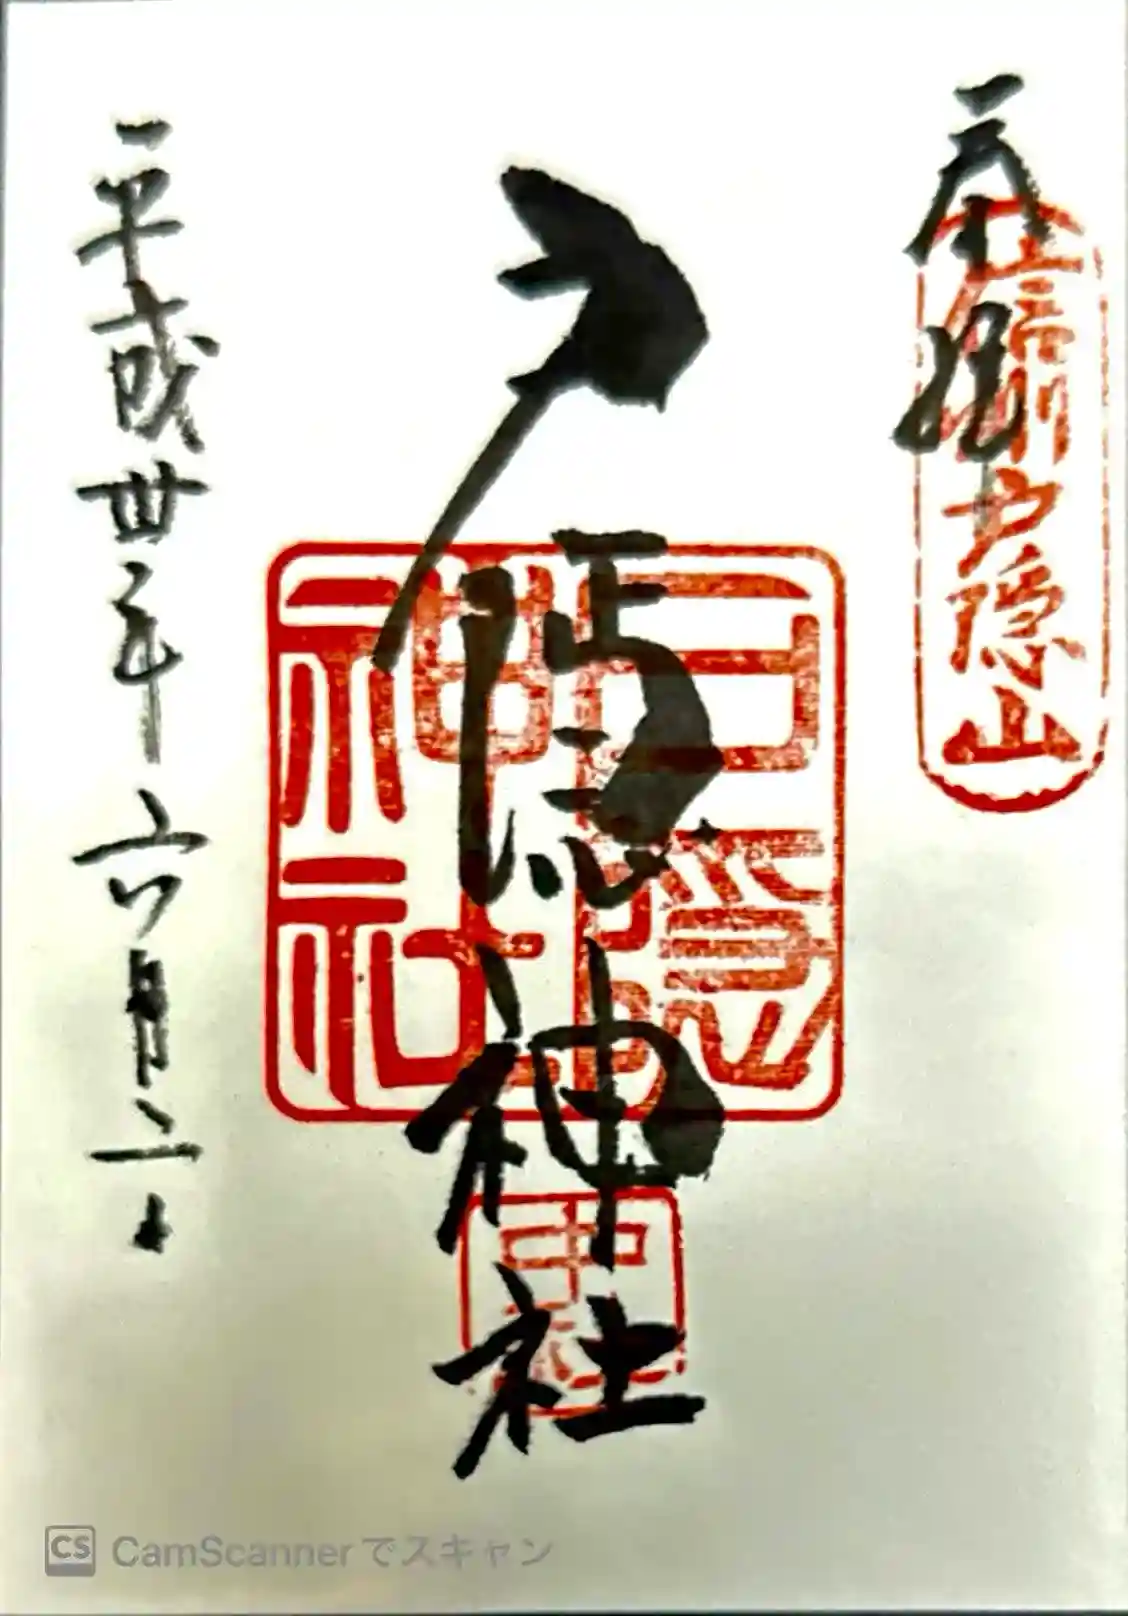 奉拝
信州戸隠山
戸隠神社
戸隠神社
中社
平成卅年六月二日
CS CamScannerでスキャン